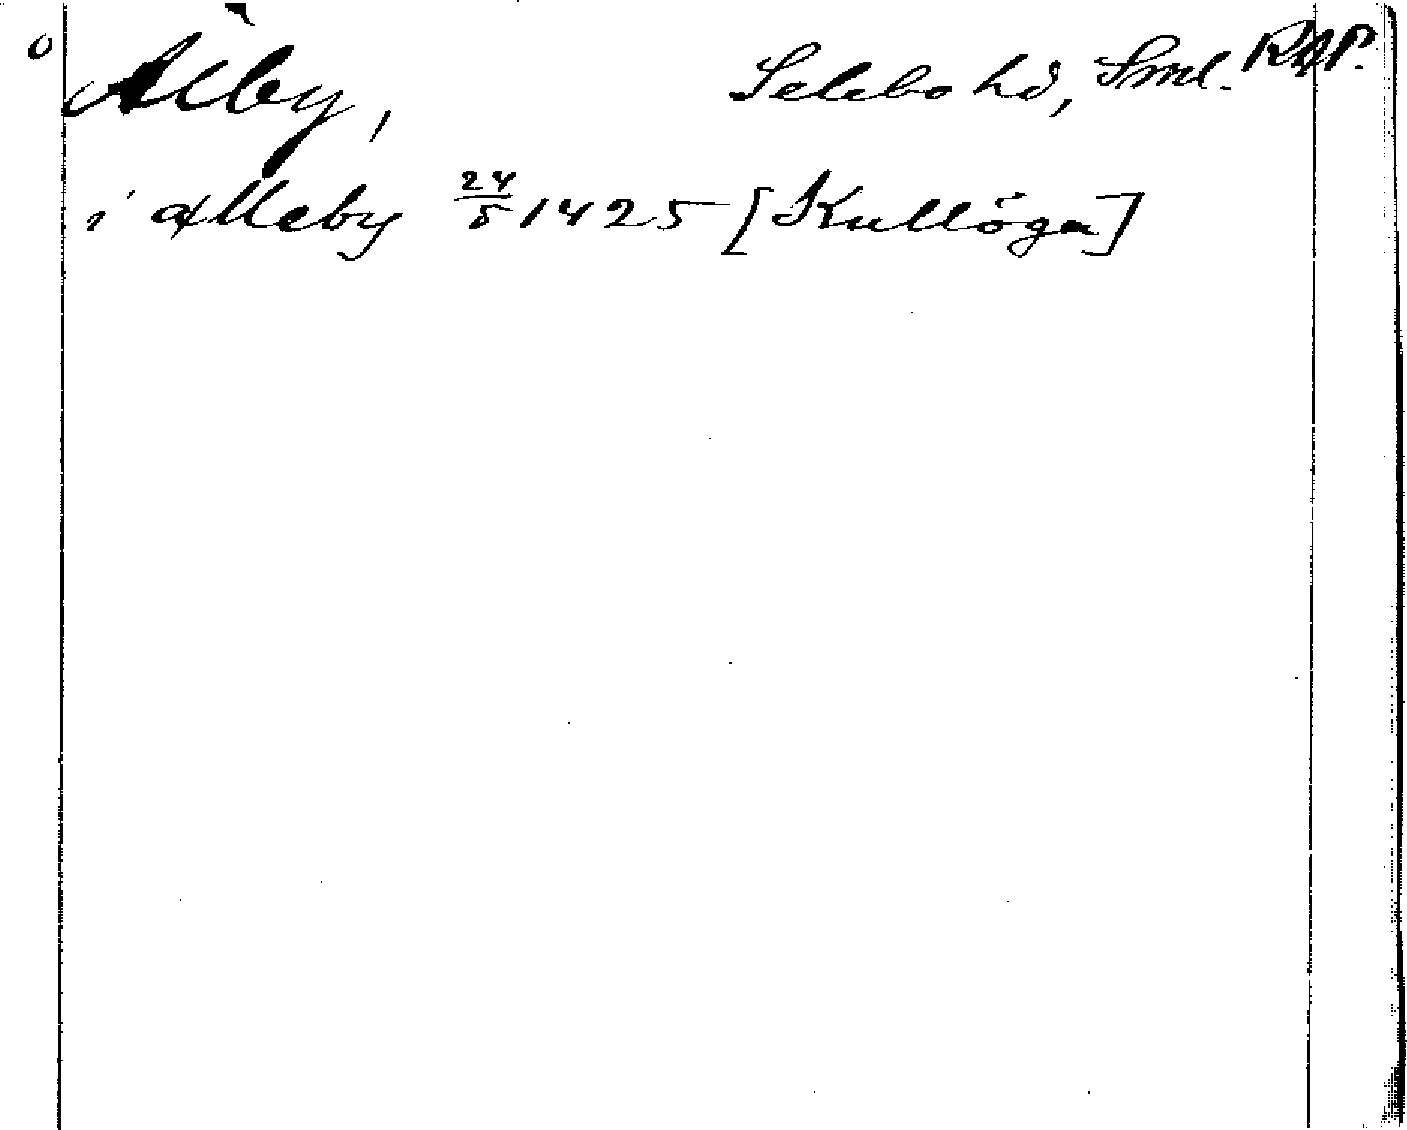 o Alby, Selebo hd, Sml. RAP.
i alleby 24/5 1425 [Kullöga]